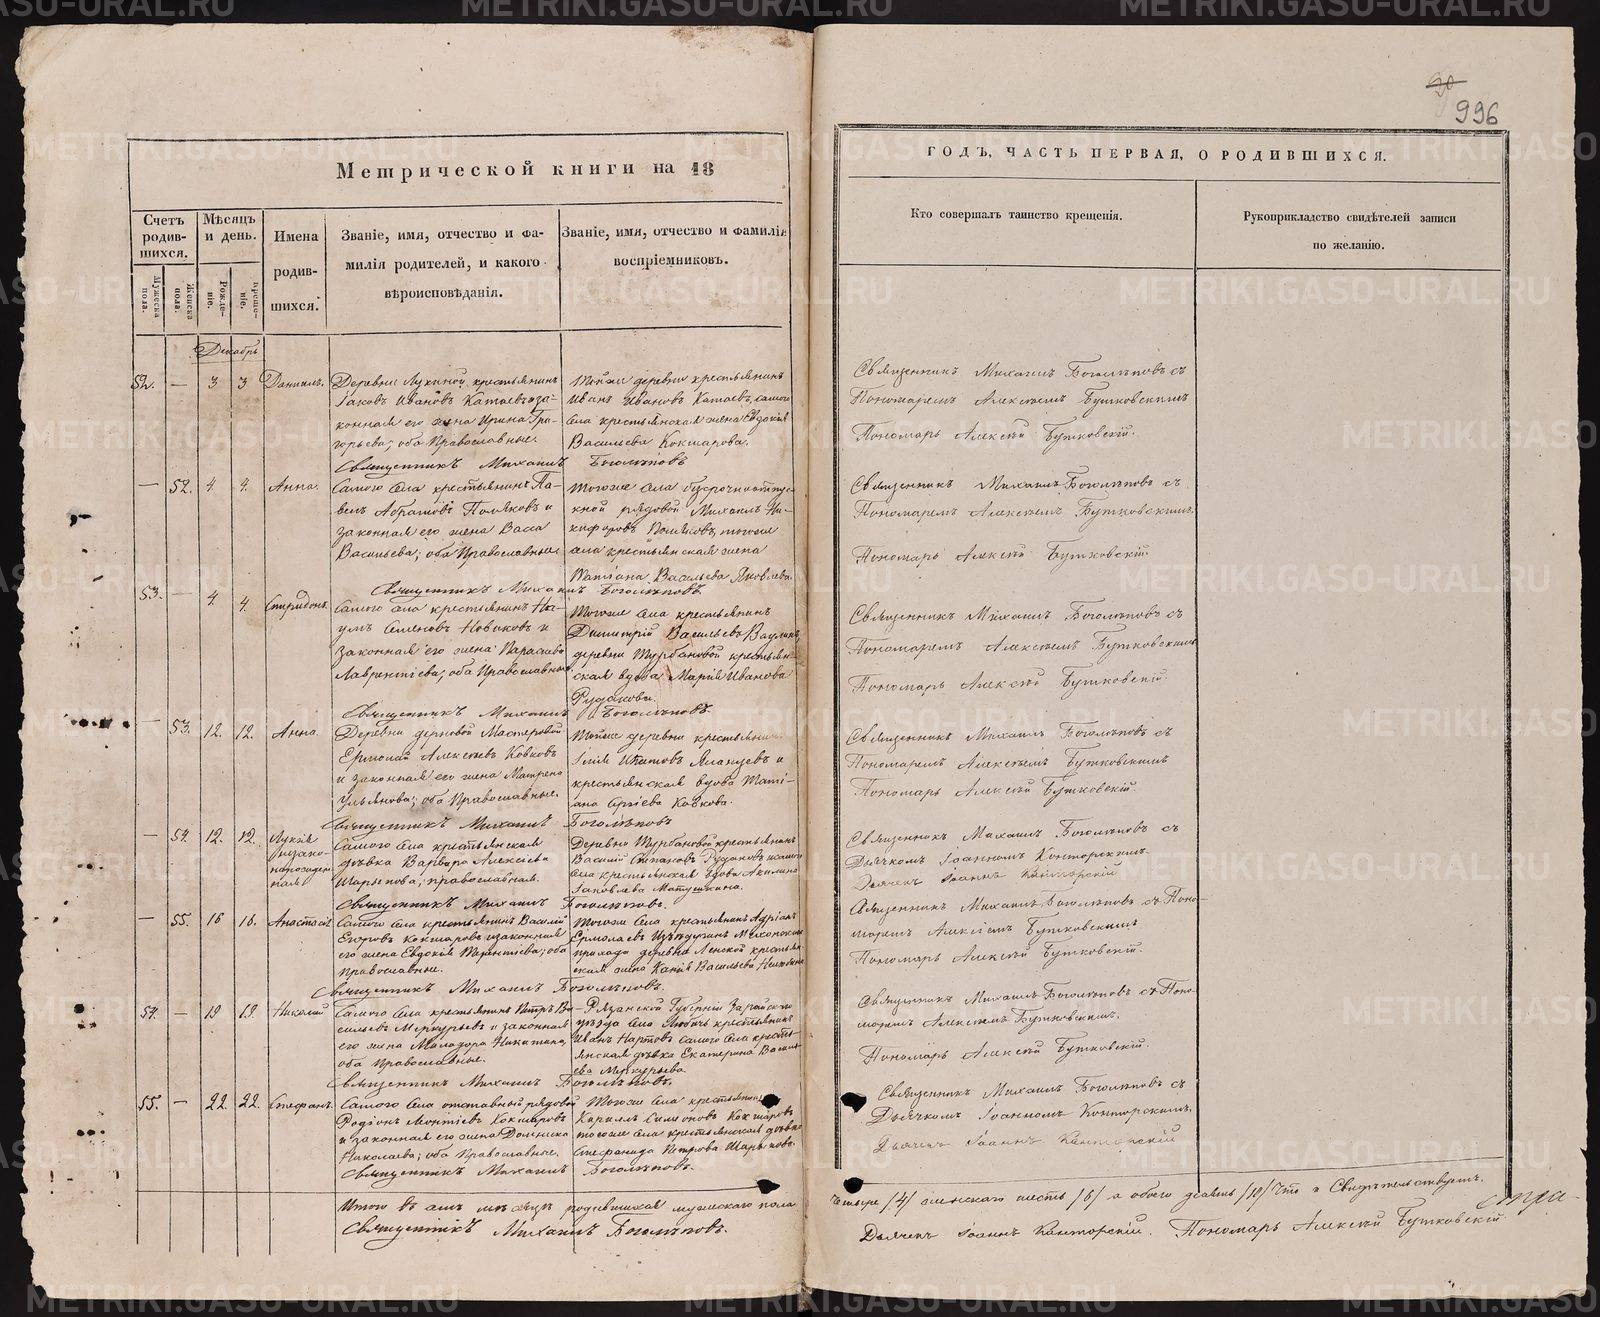 996
Метрической книги на 18
ГОДЪ, ЧАСТЬ ПЕРВАЯ, О РОДИВШИХСЯ.
Счетъ родив-шихся.
Мѣсяцъ и день.
Имена родив-шихся.
Званіе, имя, отчество и фа-
милія родителей, и какого
вѣроисповѣданія.
Званіе, имя, отчество и фамилія
воспріемниковъ.
Мужеска пола.
Женска пола.
Рожде-ніе.
Креще-ніе.
Кто совершалъ таинство крещенія.
Рукоприкладство свидѣтелей записи
по желанію.
Декабрь
52. — 3 3 Даниилъ.
Деревни Лукиной крестьянинъ
Іаковъ Ивановъ Катаевъ и за-
конная его жена Ирина Гри-
горьева; оба Православные.
Тойже деревни крестьянинъ
Иванъ Ивановъ Катаевъ, самого
села крестьянская жена Евдокія
Васильева Кокшарова.
Священникъ Михаилъ Боголѣповъ
Священникъ Михаилъ Боголѣповъ съ
Пономаремъ Алексѣемъ Бутковскимъ
Пономарь Алексѣй Бутковскій.
— 52. 4. 4. Анна.
Самого села крестьянинъ Па-
велъ Абрамовъ Поляковъ и
законная его жена Васса
Васильева; оба Православные
Тогоже села безсрочноотпус-
кной рядовой Михаилъ Ни-
кифоровъ Поляковъ, тогоже
села крестьянская жена
Татіана Васильева Яковлева.
Священникъ Михаилъ Боголѣповъ.
Священникъ Михаилъ Боголѣповъ съ
Пономаремъ Алексѣемъ Бутковскимъ.
Пономарь Алексѣй Бутковскій.
53. — 4. 4. Спиридонъ.
Самого села крестьянинъ На-
умъ Семеновъ Новиковъ и
законная его жена Параскева
Лаврентіева; оба Православные
Тогоже села крестьянинъ
Димитрій Васильевъ Ваулинъ,
деревни Турбановой крестьян-
ская вдова Марія Иванова
Рудакова.
Священникъ Михаилъ Боголѣповъ.
Священникъ Михаилъ Боголѣповъ съ
Пономаремъ Алексѣемъ Бутковскимъ
Пономарь Алексѣй Бутковскій.
— 53. 12. 12. Анна.
Деревни Мастеровой
Ермолай Алексѣевъ Ковковъ
и законная его жена Матрена
Ульянова; оба Православные.
Тойже деревни крестьянинъ
Ілія Ипатовъ и
крестьянская вдова Тати-
ана Сергіева Ковкова.
Священникъ Михаилъ Боголѣповъ
Священникъ Михаилъ Боголѣповъ съ
Пономаремъ Алексѣемъ Бутковскимъ
Пономарь Алексѣй Бутковскій.
— 54. 12. 12. Лукія
незако-
норожден-
ная
Самого села крестьянская
дѣвка Варвара Алексіева
Шарыпова, православная.
Деревни Турбановой крестьянинъ
Василій Рудаковъ, самого
села крестьянская вдова Акилина
Іаковлева Матушкина.
Священникъ Михаилъ Боголѣповъ.
Священникъ Михаилъ Боголѣповъ съ
Дьячкомъ Іоанномъ Конторскимъ.
Дьячекъ Іоаннъ Конторскій
— 55. 16 16. Анастасія
Самого села крестьянинъ Василій
Егоровъ Кокшаровъ и законная
его жена Евдокія Терентіева; оба
православные.
Тогоже села крестьянинъ Адріанъ
Ермолаевъ
прихода деревни Ленской крестьян-
ская жена Васильева
Священникъ Михаилъ Боголѣповъ.
Священникъ Михаилъ Боголѣповъ съ Поно-
маремъ Алексѣемъ Бутковскимъ
Пономарь Алексѣй Бутковскій.
54. — 19 19. Николай
Самого села крестьянинъ Петръ Ва-
сильевъ Меркурьевъ и законная
его жена Никитина,
оба Православные.
Рязанской Губерніи Зарайского
уѣзда села Любичъ крестьянинъ
Иванъ Нартовъ самого села кресть-
янская дѣвка Екатерина Василь-
ева Меркурьева.
Священникъ Михаилъ Боголѣповъ.
Священникъ Михаилъ Боголѣповъ съ Поно-
маремъ Алексѣемъ Бутковскимъ.
Пономарь Алексѣй Бутковскій.
55. — 22. 22. Стефанъ.
Самого села отставный рядовой
Родіонъ Леонтіевъ Кокшаровъ
и законная его жена Домника
Николаева; оба Православные.
Тогоже села крестьянинъ
Кириллъ Симеоновъ Кокшаровъ
тогоже села крестьянская дѣвка
Стефанида Петрова Шарыпова.
Священникъ Михаилъ Боголѣповъ.
Священникъ Михаилъ Боголѣповъ съ
Дьячкомъ Іоанномъ Конторскимъ.
Дьячекъ Іоаннъ Конторскій
Итого въ семъ мѣсяцѣ родившихся мужескаго пола
четыре /4/ женскаго шесть /6/ а обоего десять /10/ Что и Свидѣтельствуемъ.
Священникъ Михаилъ Боголѣповъ.
Дьячекъ Іоаннъ Конторскій. Пономарь Алексѣй Бутковскій
METRIKI.GASO-URAL.RU